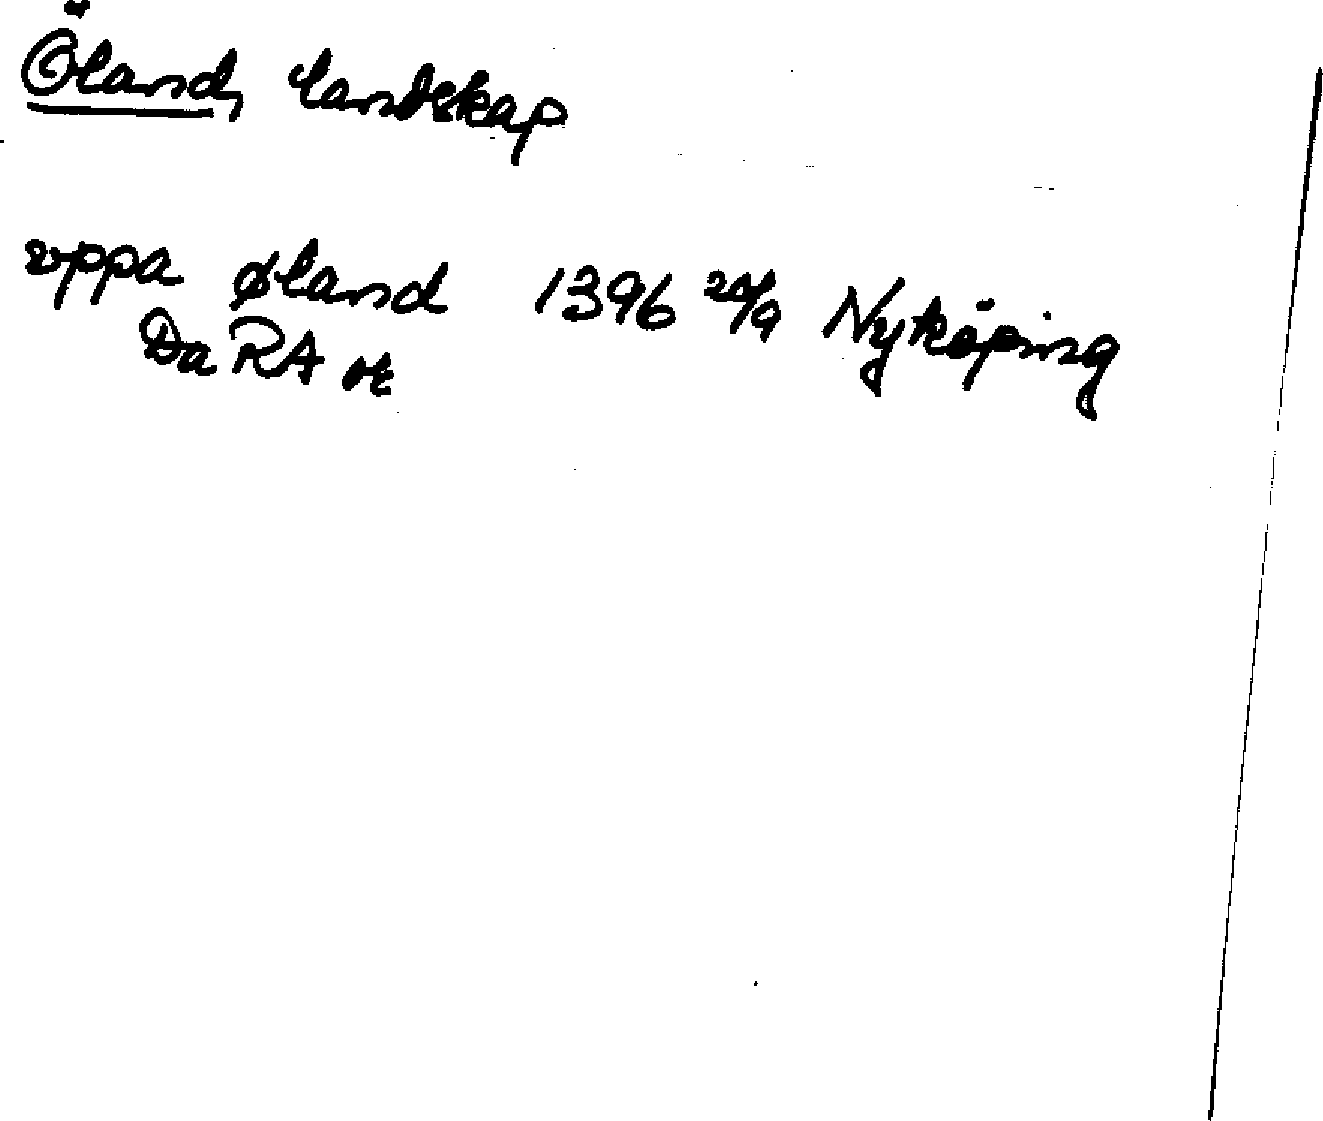 Öland, landskap
vppa øland 1396 20/9 Nyköping
Da RA